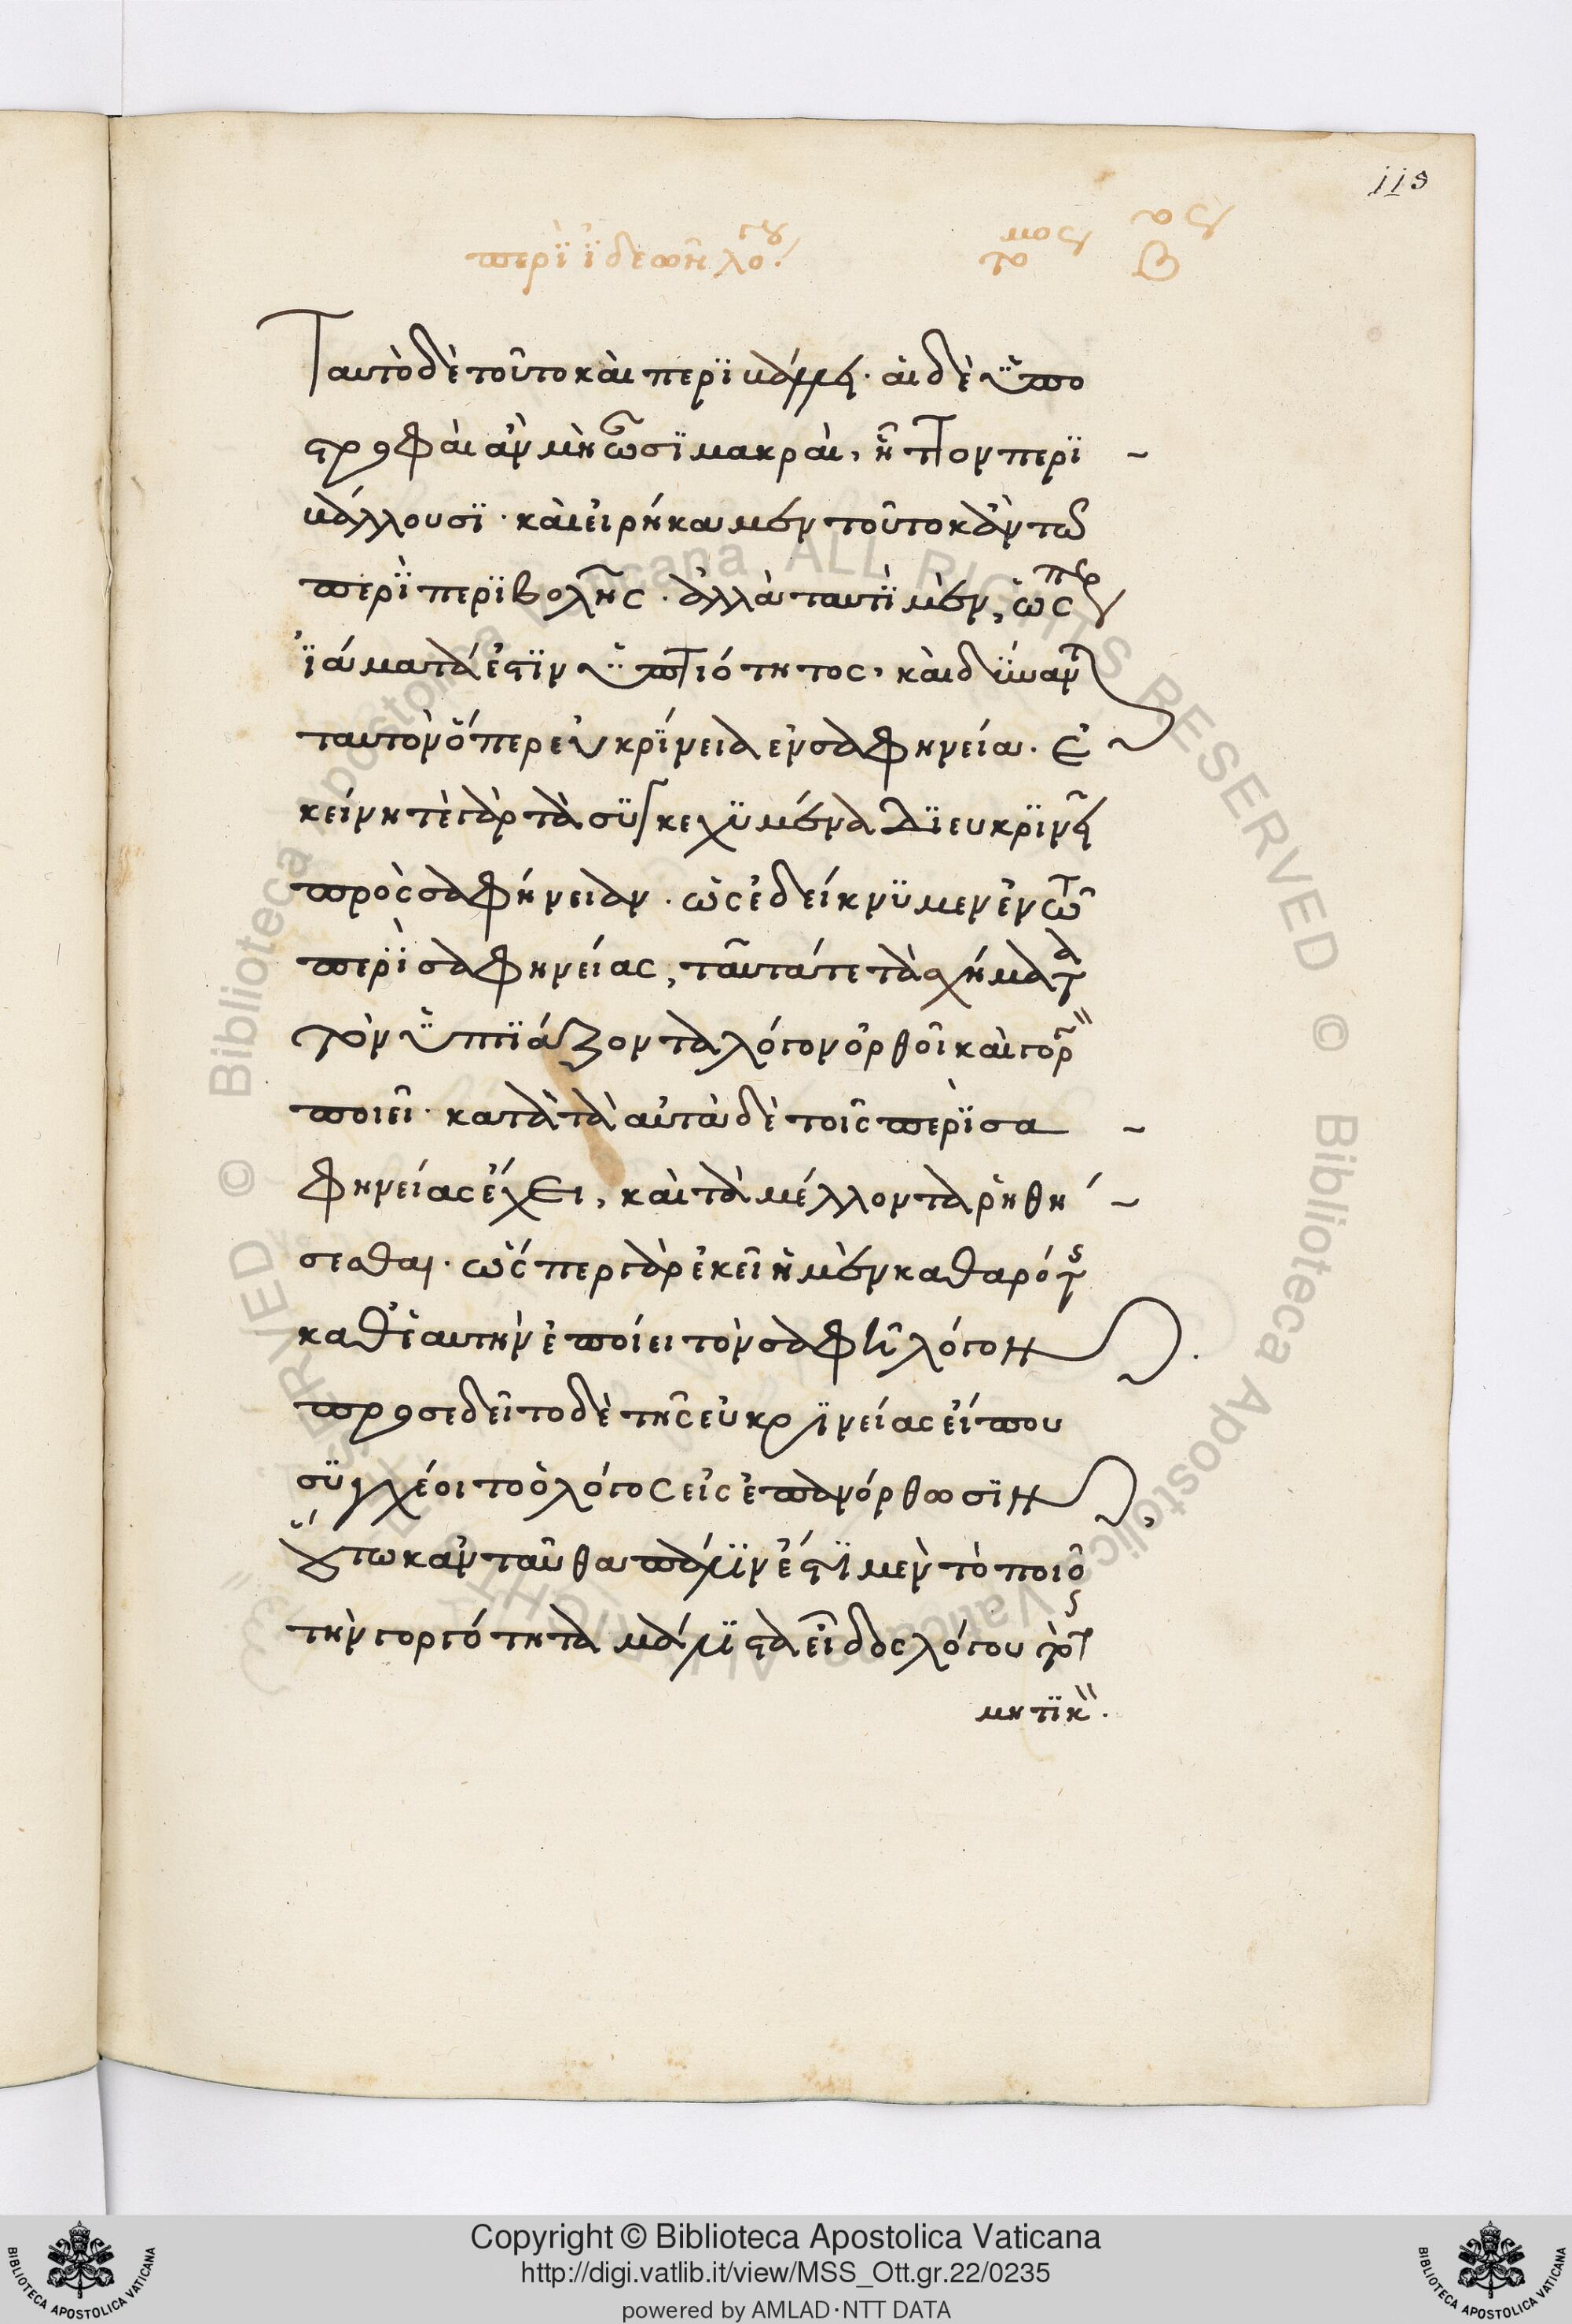 119
περὶ ἰδεῶν λόγου τομος α
β
Ταυτὸ δὲ τοῦτο καὶ περὶ κάλλους. αἱ δὲ ὑπο
στροφαὶ ἂν μὴ ὦσι μακραὶ, ἧττον περι
κάλλουσι. καὶ εἰρήκαμεν τοῦτο κἀν τῶ
περὶ περιβολῆς. ἀλλὰ ταυτὶ μὲν, ὥσπερ
ἰάματά ἐστιν ὑπτιότητος, καὶ δύναντ
ταυτὸν ὅπερ εὐκρίνεια ἐν σαφηνεία. ἐ
κείνη τὲ γὰρ τὰ συγκεχυμένα διευκρινεῖ
πρὸς σαφήνειαν. ὡς ἐδείκνυμεν ἐν τῶ
περὶ σαφηνείας, ταῦτά τε τὰ σχήματα
τὸν ὑπτιάζοντα λόγον ὀρθοῖ καὶ γοργὸν
ποιεῖ. κατὰ τὰ αὐτὰ δὲ τοῖς περὶ σα
φηνείας ἔχει, καὶ τὰ μέλλοντα ῥηθή
σεσθαι. ὥσπερ γὰρ ἐκεῖ ἡ μὲν καθαρότης
καθ' ἑαυτὴν ἐποίει τὸν σαφῆ λόγον.
προσεδεῖτο δὲ τῆς εὐκρινείας εἴ που
συγχέοιτο ὁ λόγος εἰς ἐπανόρθωσιν,
οὕτω κἀνταῦθα πάλιν ἔστι μὲν τὸ ποιοῦν
τὴν γοργότητα μάλιστα εἶδος λόγου τὸ τ
μητικὸν.
Copyright © Biblioteca Apostolica Vaticana
http://digi.vatlib.it/view/MSS_Ott.gr.22/0235
powered by AMLAD·NTT DATA